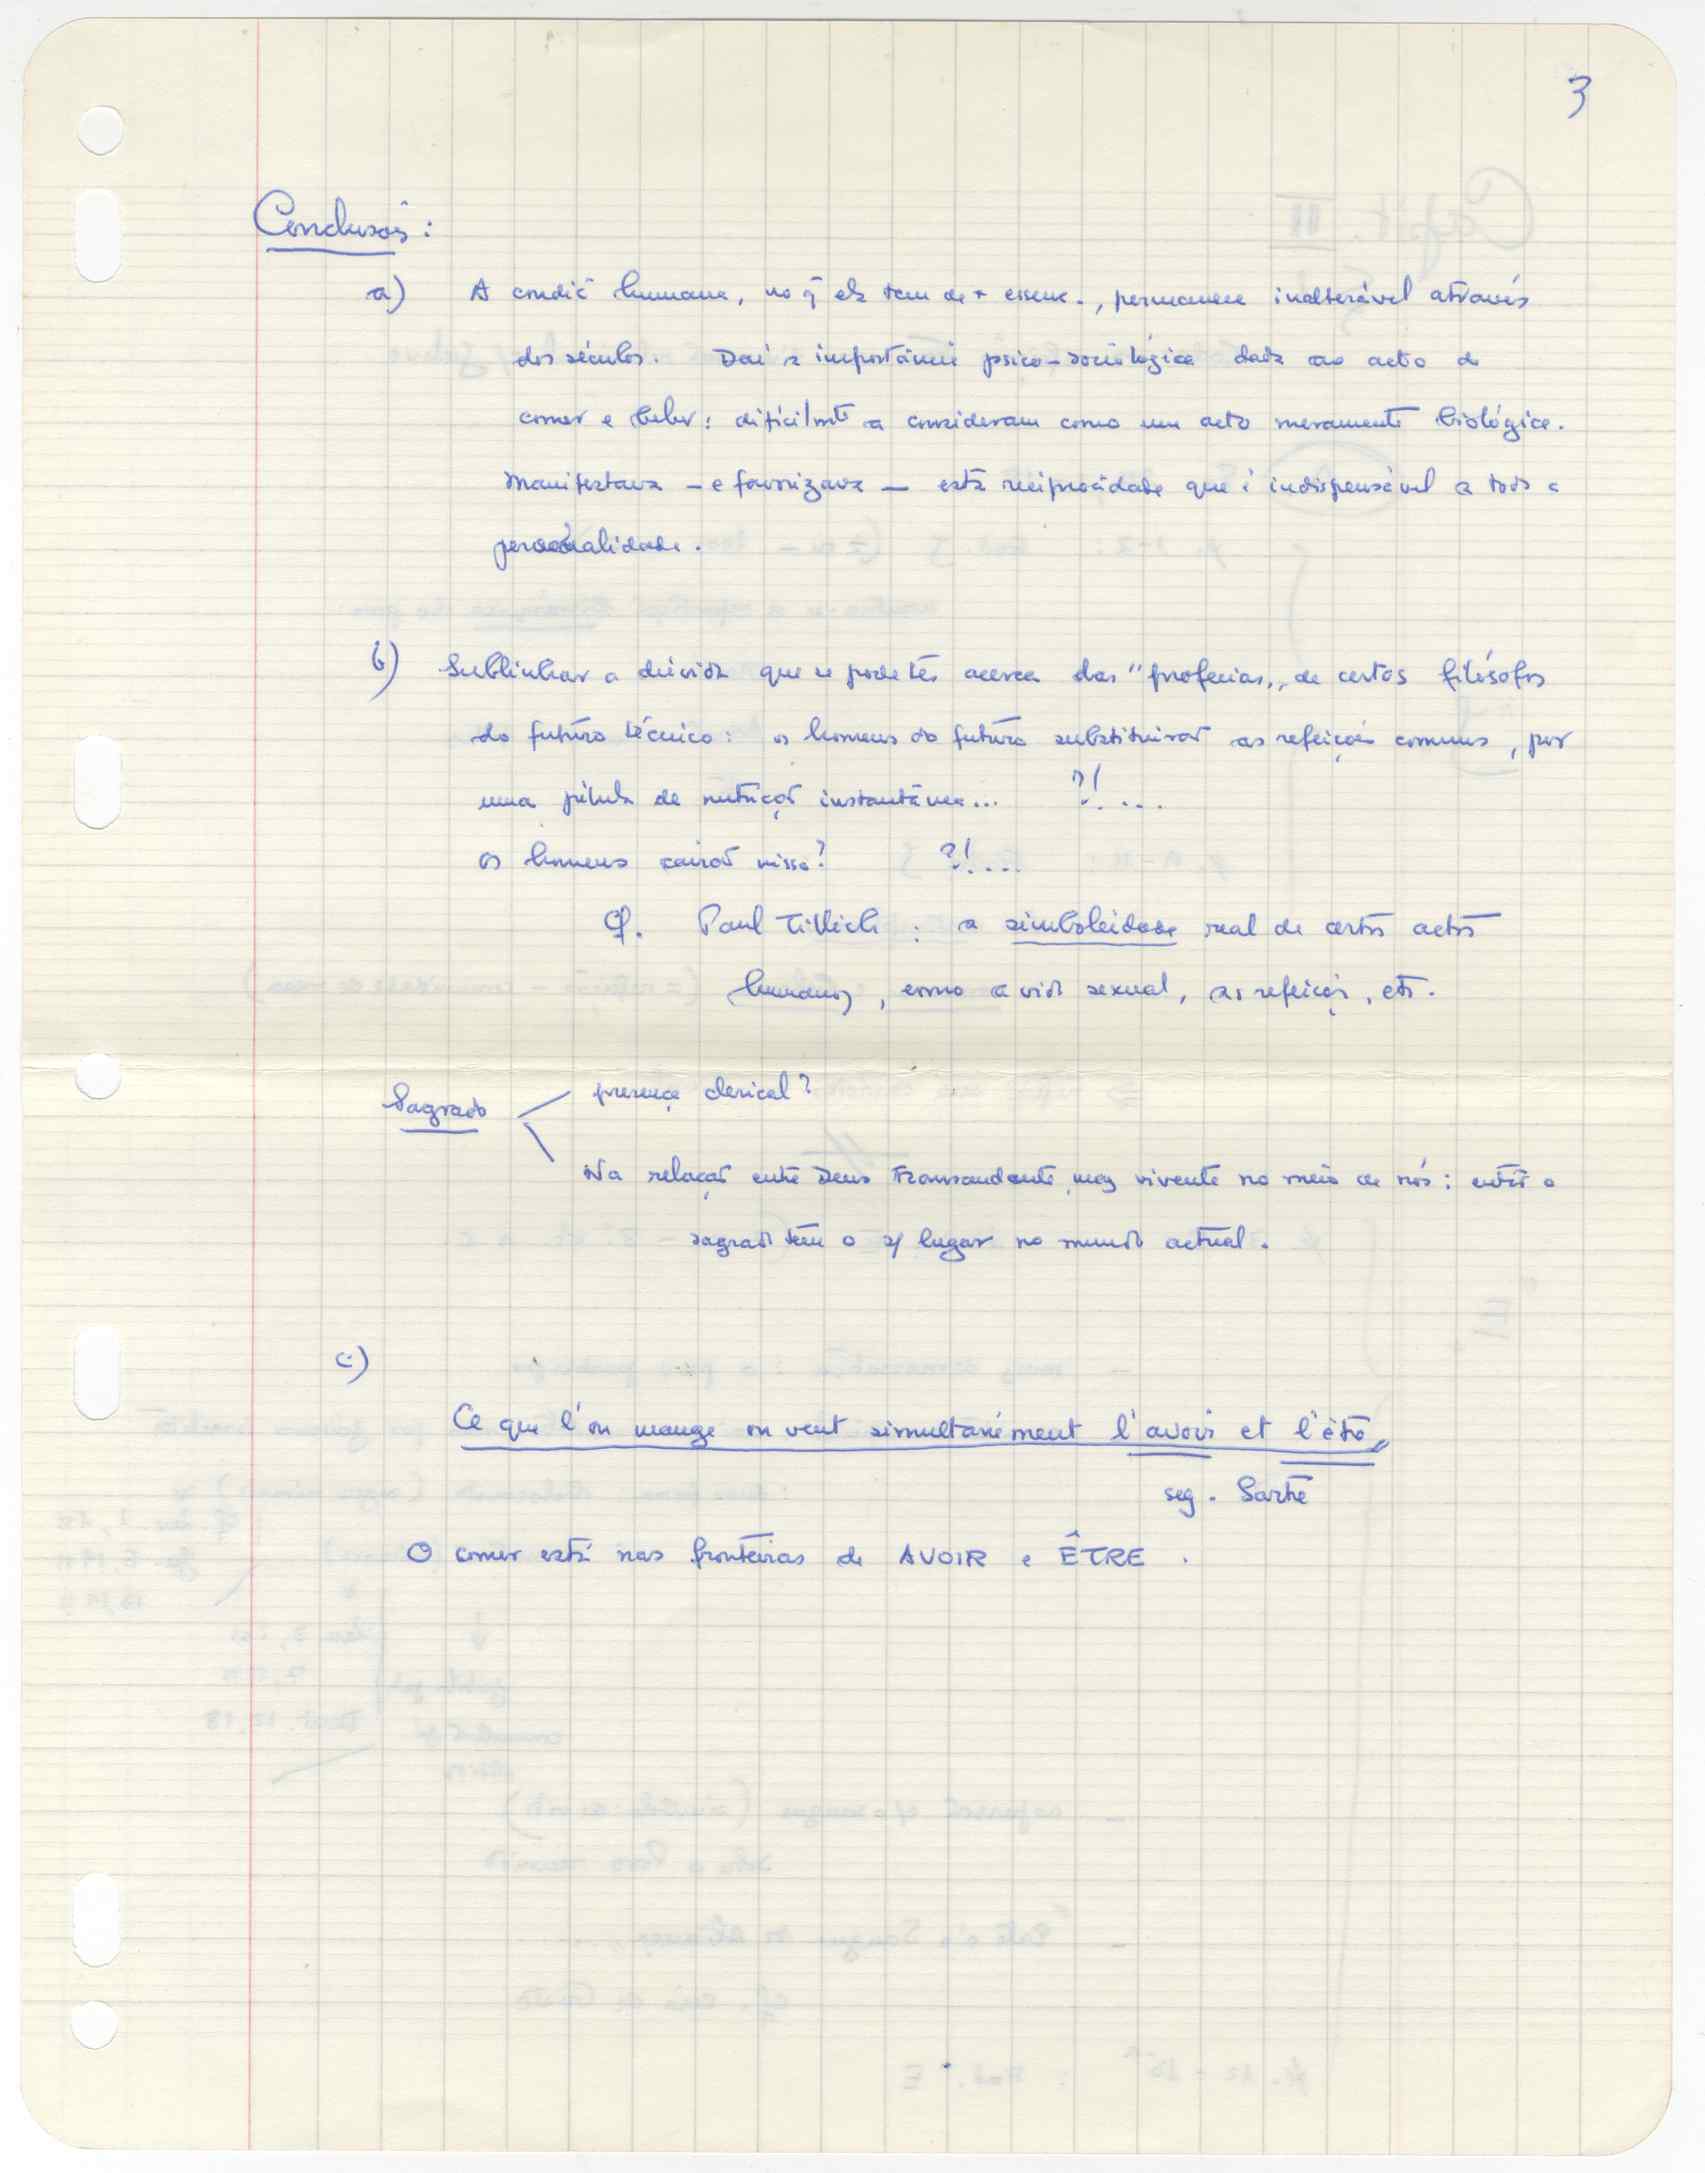 3
Conclusão:
a) A condiç humana, no q̃ ela tem de + essenc., permanece inalterável através
dos séculos. Daí a importância psico-sociológica dada ao acto de
comer e beber: dificilmte a consideram como um acto meramente biológico.
Manifestava - e favorizava - esta reciprocidade que é indispensável a toda a
personalidade.
b) Sublinhar a dúvida que se pode ter acerca das "profecias" de certos filósofos
do futuro técnico: os homens do futuro substituirão as refeições comuns, por
uma pílula de nutrição instantânea... ?!....
os homens cairão nisso? ?!....
Cf. Paul Tillich: a simboleidade real de certos actos
humanos, como a vida sexual, as refeições, etc.
Sagrado
presença clerical?
Na relação entre Deus Transcendente, mas vivente no meio de nós: então o
sagrado tem o s/ lugar no mundo actual.
c)
Ce que l'on mange on veut simultanément l'avoir et l'être"
seg. Sartre
O comer está nas fronteiras de AVOIR e ÊTRE.